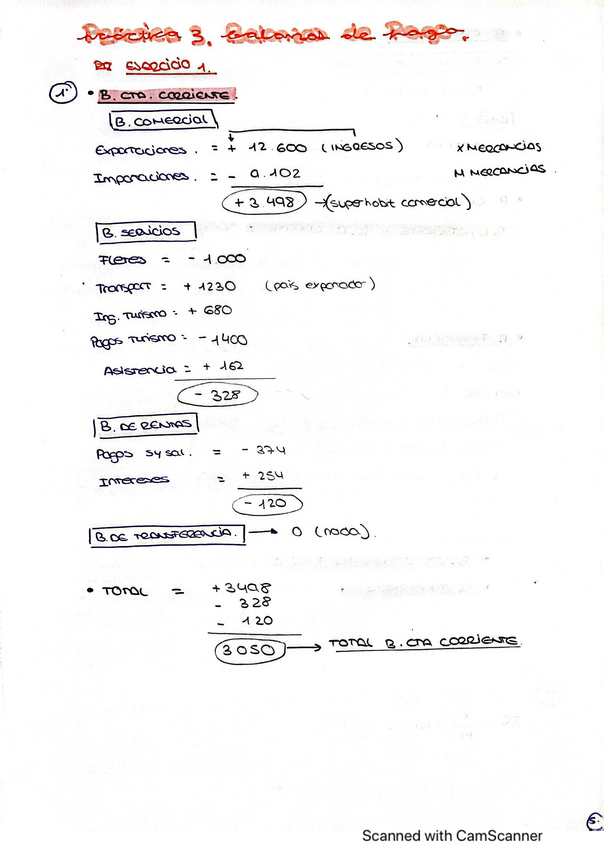 Práctica 3. Balanza de Pagos.
Exercicio 1.
1º • B. CTA. CORRIENTE.
B. COMERCIAL
Exportaciones. = + 12.600 (INGRESOS) X MERCANCIAS
Importaciones. = - 9.102 M MERCANCIAS.
+ 3.498 → (superhabit comercial)
B. SERVICIOS
Fletes = - 1.000
Transport = + 1230 (país exportador)
Ing. Turismo = + 680
Pagos Turismo = - 1400
Asistencia = + 162
- 328
B. DE RENTAS
Pagos sy sal. = - 374
Intereses = + 254
- 120
B. DE TRANSFERENCIA. → 0 (nada).
• TOTAL = +3498
- 328
- 120
3050 → TOTAL B. CTA CORRIENTE.
5.
Scanned with CamScanner